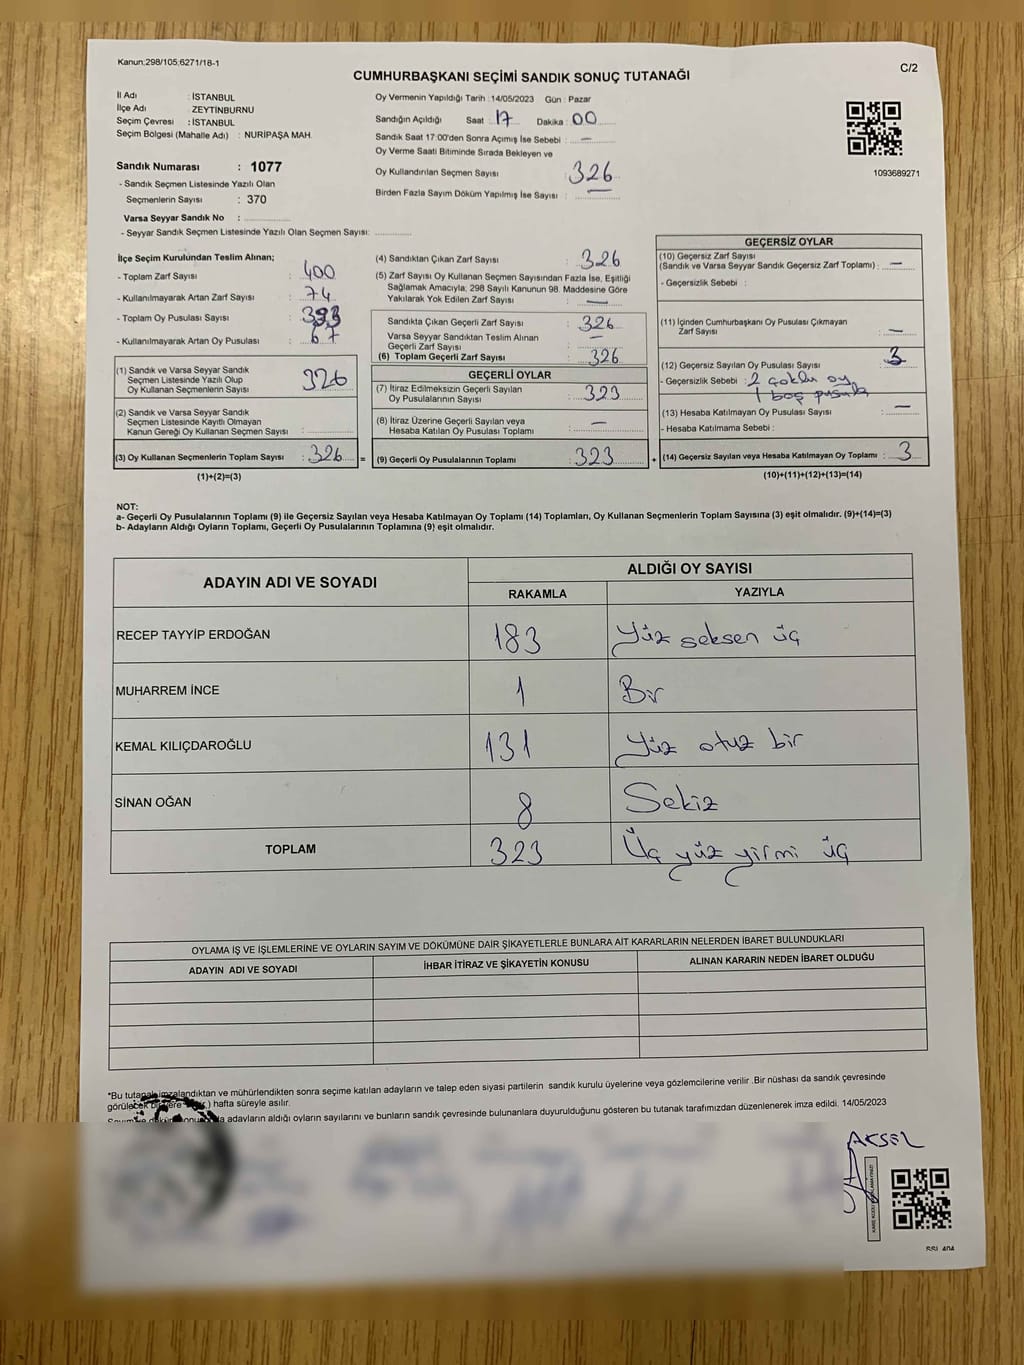 Kanun:298/105;6271/18-1
C/2
CUMHURBAŞKANI SEÇİMİ SANDIK SONUÇ TUTANAĞI
İl Adı : İSTANBUL
İlçe Adı : ZEYTİNBURNU
Seçim Çevresi : İSTANBUL
Seçim Bölgesi (Mahalle Adı) : NURİPAŞA MAH.
Sandık Numarası : 1077
- Sandık Seçmen Listesinde Yazılı Olan
Seçmenlerin Sayısı : 370
Varsa Seyyar Sandık No :
- Seyyar Sandık Seçmen Listesinde Yazılı Olan Seçmen Sayısı:
Oy Vermenin Yapıldığı Tarih :14/05/2023 Gün : Pazar
Sandığın Açıldığı Saat : 17 Dakika : 00
Sandık Saat 17:00'den Sonra Açımış İse Sebebi : —
Oy Verme Saati Bitiminde Sırada Bekleyen ve
Oy Kullandırılan Seçmen Sayısı : 326
Birden Fazla Sayım Döküm Yapılmış İse Sayısı : —
1093689271
İlçe Seçim Kurulundan Teslim Alınan;
- Toplam Zarf Sayısı : 400
- Kullanılmayarak Artan Zarf Sayısı : 74
- Toplam Oy Pusulası Sayısı : 393
- Kullanılmayarak Artan Oy Pusulası : 67
(1) Sandık ve Varsa Seyyar Sandık
Seçmen Listesinde Yazılı Olup
Oy Kullanan Seçmenlerin Sayısı : 326
(2) Sandık ve Varsa Seyyar Sandık
Seçmen Listesinde Kayıtlı Olmayan
Kanun Gereği Oy Kullanan Seçmen Sayısı :
(3) Oy Kullanan Seçmenlerin Toplam Sayısı : 326 =
(1)+(2)=(3)
(4) Sandıktan Çıkan Zarf Sayısı : 326
(5) Zarf Sayısı Oy Kullanan Seçmen Sayısından Fazla İse, Eşitliği
Sağlamak Amacıyla; 298 Sayılı Kanunun 98. Maddesine Göre
Yakılarak Yok Edilen Zarf Sayısı : —
Sandıkta Çıkan Geçerli Zarf Sayısı : 326
Varsa Seyyar Sandıktan Teslim Alınan
Geçerli Zarf Sayısı : —
(6) Toplam Geçerli Zarf Sayısı : 326
GEÇERLİ OYLAR
(7) İtiraz Edilmeksizin Geçerli Sayılan
Oy Pusulalarının Sayısı : 323
(8) İtiraz Üzerine Geçerli Sayılan veya
Hesaba Katılan Oy Pusulası Toplamı : —
(9) Geçerli Oy Pusulalarının Toplamı : 323 +
GEÇERSİZ OYLAR
(10) Geçersiz Zarf Sayısı
(Sandık ve Varsa Seyyar Sandık Geçersiz Zarf Toplamı) : —
- Geçersizlik Sebebi :
(11) İçinden Cumhurbaşkanı Oy Pusulası Çıkmayan
Zarf Sayısı : —
(12) Geçersiz Sayılan Oy Pusulası Sayısı : 3
- Geçersizlik Sebebi : 2 çoklu oy
1 boş pusula
(13) Hesaba Katılmayan Oy Pusulası Sayısı : —
- Hesaba Katılmama Sebebi :
(14) Geçersiz Sayılan veya Hesaba Katılmayan Oy Toplamı : 3
(10)+(11)+(12)+(13)=(14)
NOT:
a- Geçerli Oy Pusulalarının Toplamı (9) ile Geçersiz Sayılan veya Hesaba Katılmayan Oy Toplamı (14) Toplamları, Oy Kullanan Seçmenlerin Toplam Sayısına (3) eşit olmalıdır. (9)+(14)=(3)
b- Adayların Aldığı Oyların Toplamı, Geçerli Oy Pusulalarının Toplamına (9) eşit olmalıdır.
ADAYIN ADI VE SOYADI
ALDIĞI OY SAYISI
RAKAMLA YAZIYLA
RECEP TAYYİP ERDOĞAN 183 Yüz seksen üç
MUHARREM İNCE 1 Bir
KEMAL KILIÇDAROĞLU 131 Yüz otuz bir
SİNAN OĞAN 8 Sekiz
TOPLAM 323 Üç yüz yirmi üç
OYLAMA İŞ VE İŞLEMLERİNE VE OYLARIN SAYIM VE DÖKÜMÜNE DAİR ŞİKAYETLERLE BUNLARA AİT KARARLARIN NELERDEN İBARET BULUNDUKLARI
ADAYIN ADI VE SOYADI İHBAR İTİRAZ VE ŞİKAYETİN KONUSU ALINAN KARARIN NEDEN İBARET OLDUĞU
*Bu tutanak imzalandıktan ve mühürlendikten sonra seçime katılan adayların ve talep eden siyasi partilerin sandık kurulu üyelerine veya gözlemcilerine verilir .Bir nüshası da sandık çevresinde
görülecek bir yere ) hafta süreyle asılır.
adayların aldığı oyların sayılarını ve bunların sandık çevresinde bulunanlara duyurulduğunu gösteren bu tutanak tarafımızdan düzenlenerek imza edildi. 14/05/2023
AKSEL